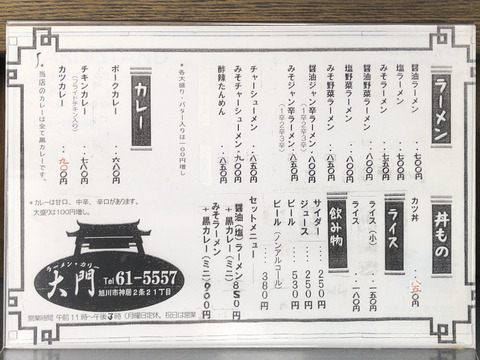 ラーメン
醤油ラーメン ・・七〇〇円
塩ラーメン ・・七〇〇円
みそラーメン ・・七五〇円
醤油野菜ラーメン ・・八〇〇円
塩野菜ラーメン ・・八〇〇円
みそ野菜ラーメン ・・八五〇円
醤油ジャン辛ラーメン ・・八〇〇円
(1辛2辛3辛)
みそジャン辛ラーメン ・・八五〇円
(1辛2辛3辛)
チャーシューメン ・・八五〇円
みそチャーシューメン ・・九〇〇円
酢辣たんめん ・・八五〇円
*各大盛り・バター入りは一〇〇円増し
カレー
ポークカレー ・・六八〇円
チキンカレー ・・七八〇円
(フライドチキン入り)
カツカレー ・・九〇〇円
*当店のカレーは全て黒カレーです。
丼もの
カツ丼
ライス
ライス(小) ・・一五〇円
ライス ・・一八〇円
飲み物
サイダー 250円
ジュース 350円
ビール 530円
ビール(ノンアルコール) 380円
セットメニュー
醤油(塩)ラーメン
+黒カレー(ミニ) 850円
みそラーメン
+黒カレー(ミニ) 900円
*カレーは甘口、中辛、辛口があります。
大盛りは100円増し。
ラーメン・カリー
大門
Tel 61-5557
旭川市神居2条21丁目
営業時間 午前11時~午後3時(月曜日定休、祝日は営業